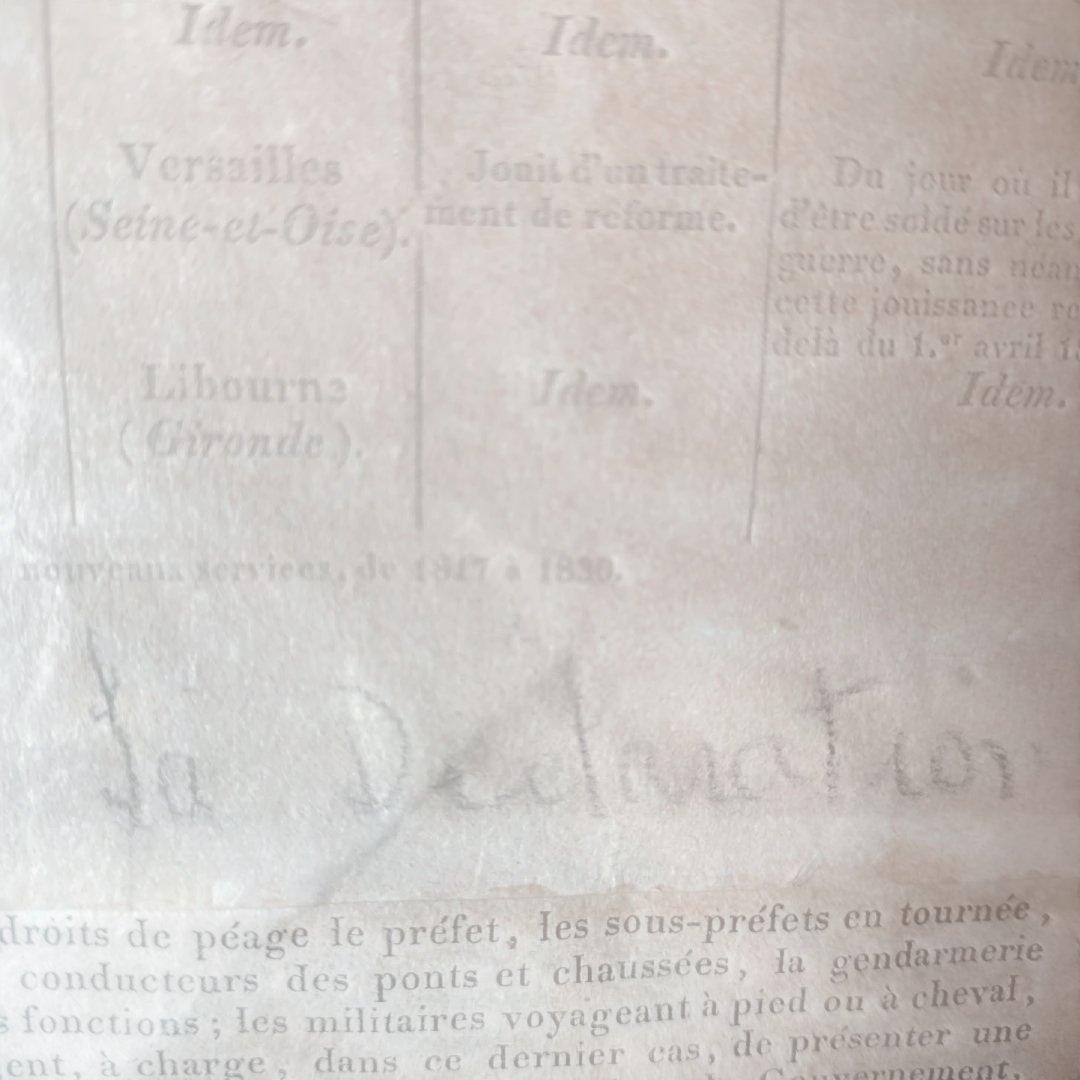 Idem. Idem. Idem
Versailles Jouit d'un traite- Du jour où il
(Seine-et-Oise). ment de réforme. d'être soldé sur les
guerre, sans néan
cette jouissance re
delà du 1.er avril 18
Libourne Idem. Idem.
(Gironde).
nouveaux services, de 1817 à 1830.
La Déclaration
droits de péage le préfet, les sous-préfets en tournée,
conducteurs des ponts et chaussées, la gendarmerie
s fonctions; les militaires voyageant à pied ou à cheval,
ent, à charge, dans ce dernier cas, de présenter une
Gouvernement,